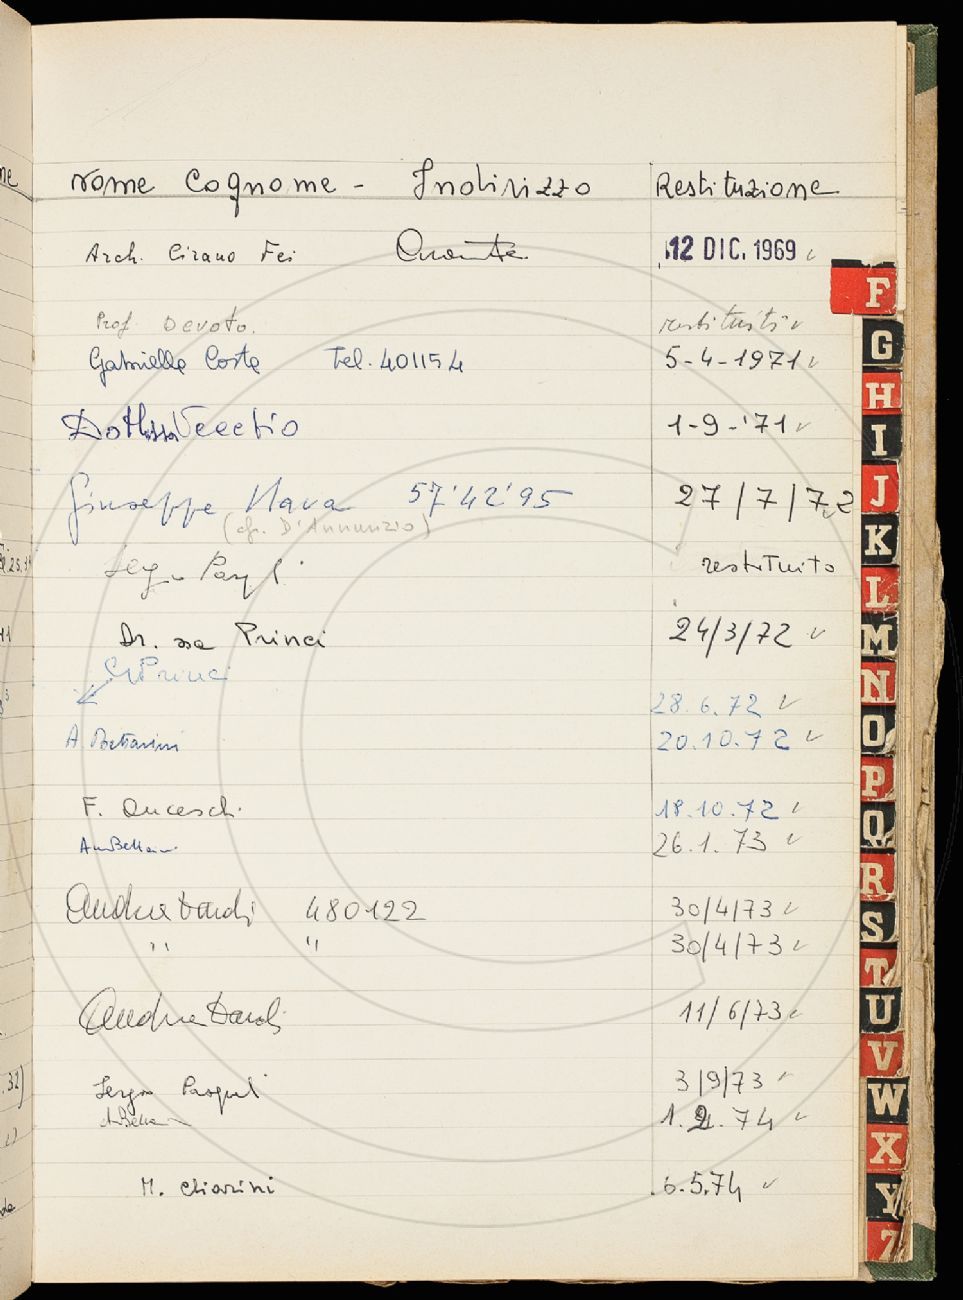 Nome Cognome - Indirizzo Restituzione
Arch. Cirano Fei 12 DIC. 1969
Prof. Devoto. restituiti
Gabriella Coste Tel. 401154 5-4-1971
Dott.ssa Vecchio 1-9-'71
Giuseppe Nava 57'42'95 27/7/72
(cfr. D'Annunzio)
restituito
Dr. ssa Princi 24/3/72
Princi
28.6.72
A. Bettarini 20.10.72
F. 18.10.72
26.1.73
Andrea Dardi 480122 30/4/73
" " 30/4/73
Andrea Dardi 11/6/73
Sergio 3/9/73
1.2.74
M. Chiarini 6.5.74
F
G
H
I
J
K
L
M
N
O
P
Q
R
S
T
U
V
W
X
Y
Z